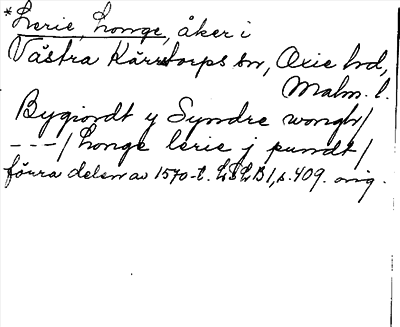 *Lerie, Longe, åker i
Västra Kärrstorps sn, Oxie hd,
Malm. l.
Bygiordt y Syndre wongh/
---/ Longe lerie j pundt/
förra delen av 1570-t. LSLB1, s. 409. orig.